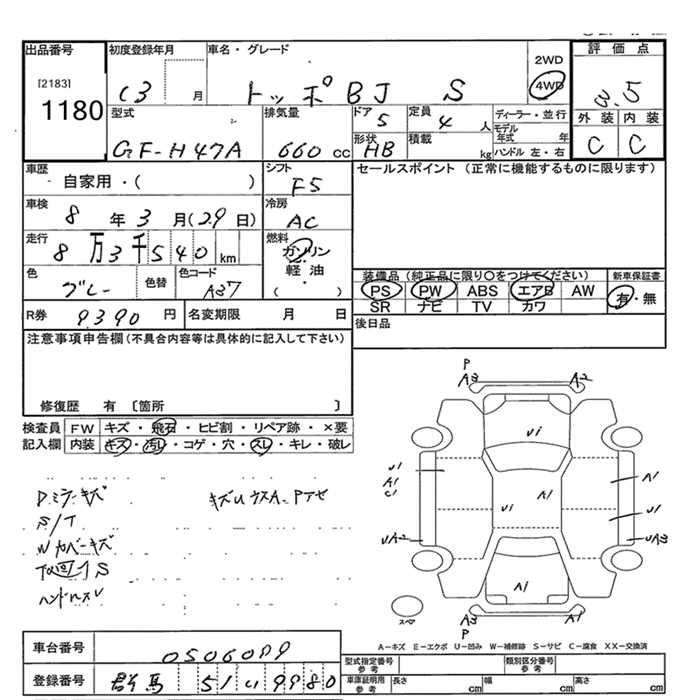 出品番号
[2183]
1180
初度登録年月
13 月
車名・グレード
トッポBJ S
2WD
4WD
評価点
3.5
外装 内装
C C
型式
GF-H47A
排気量
660 cc
ドア
5
定員
4 人
形状
HB
積載
kg
ディーラー・並行
モデル年式 年
ハンドル 左・右
車歴
自家用・( )
シフト
F5
セールスポイント (正常に機能するものに限ります)
車検
8 年 3 月(29日)
冷房
AC
走行
8万3千540 km
燃料
ガソリン
軽油
・
( )
色
グレー
色替
色コード
A37
装備品 (純正品に限り○をつけてください)
PS PW ABS エアB AW
SR ナビ TV カワ
新車保証書
有・無
R券 9390 円
名変期限 月 日
後日品
注意事項申告欄(不具合内容等は具体的に記入して下さい)
修復歴 有〔箇所 〕
検査員記入欄
FW キズ・飛石・ヒビ割・リペア跡・×要
内装 キズ・汚レ・コゲ・穴・スレ・キレ・破レ
Dミラーキズ
S/T
Wカバーキズ
ハンドルスレ
P
A3 A2
U1
U1
A1
C1
A1
U1 A1
U1
UA2
UA3
A1
A3 A1
P
スペア
A-キズ E-エクボ U-凹み W-補修跡 S-サビ C-腐食 XX-交換済
車台番号 0506099
登録番号 群馬 51 い 9980
型式指定番号 参考
類別区分番号 参考
車庫証明用 参考
長さ cm 幅 cm 高さ cm